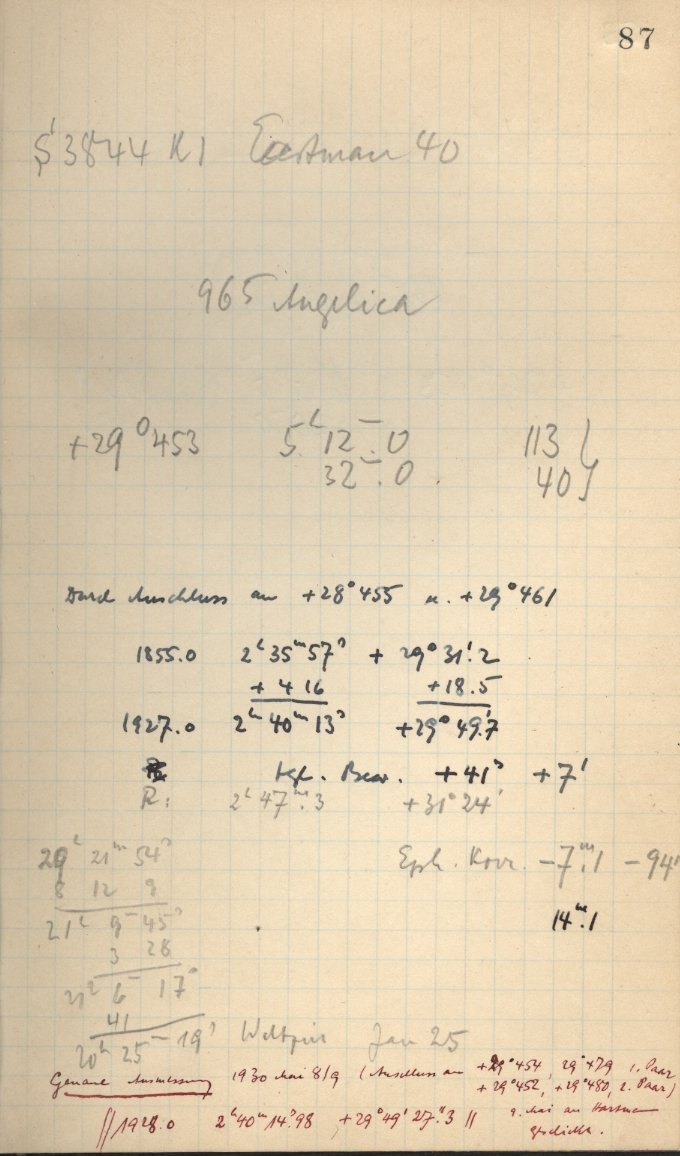 87
S 3844 R1 Eastman 40
965 Angelica
+29°453 5ʰ12ᵐ.0 113
32ᵐ.0 40
Durch Anschluss an +28°455 u. +29°461
1855.0 2ʰ35ᵐ57ˢ + 29°31'.2
+ 4 16 +18.5
1927.0 2ʰ40ᵐ13ˢ +29°49.'7
tgl. Bew. +41ˢ +7'
R: 2ʰ47ᵐ.3 +31°24'
29ʰ 21ᵐ 54ˢ Eph. Korr. −7ᵐ.1 −94'
8 12 9
21ʰ 9ᵐ 45ˢ 14ᵐ.1
3 28
21ʰ 6ᵐ 17ˢ
41
20ʰ 25ᵐ 19ˢ Weltzeit Jan 25
Genaue Ausmessung 1930 Mai 8/9 (Anschluss an +29°454, 29°479 1. Paar
+29°452, +29°480, 2. Paar)
‖1928.0 2ʰ40ᵐ14ˢ.98 +29°49'27".3 ‖ 9. Mai an Hartmann
geschickt.